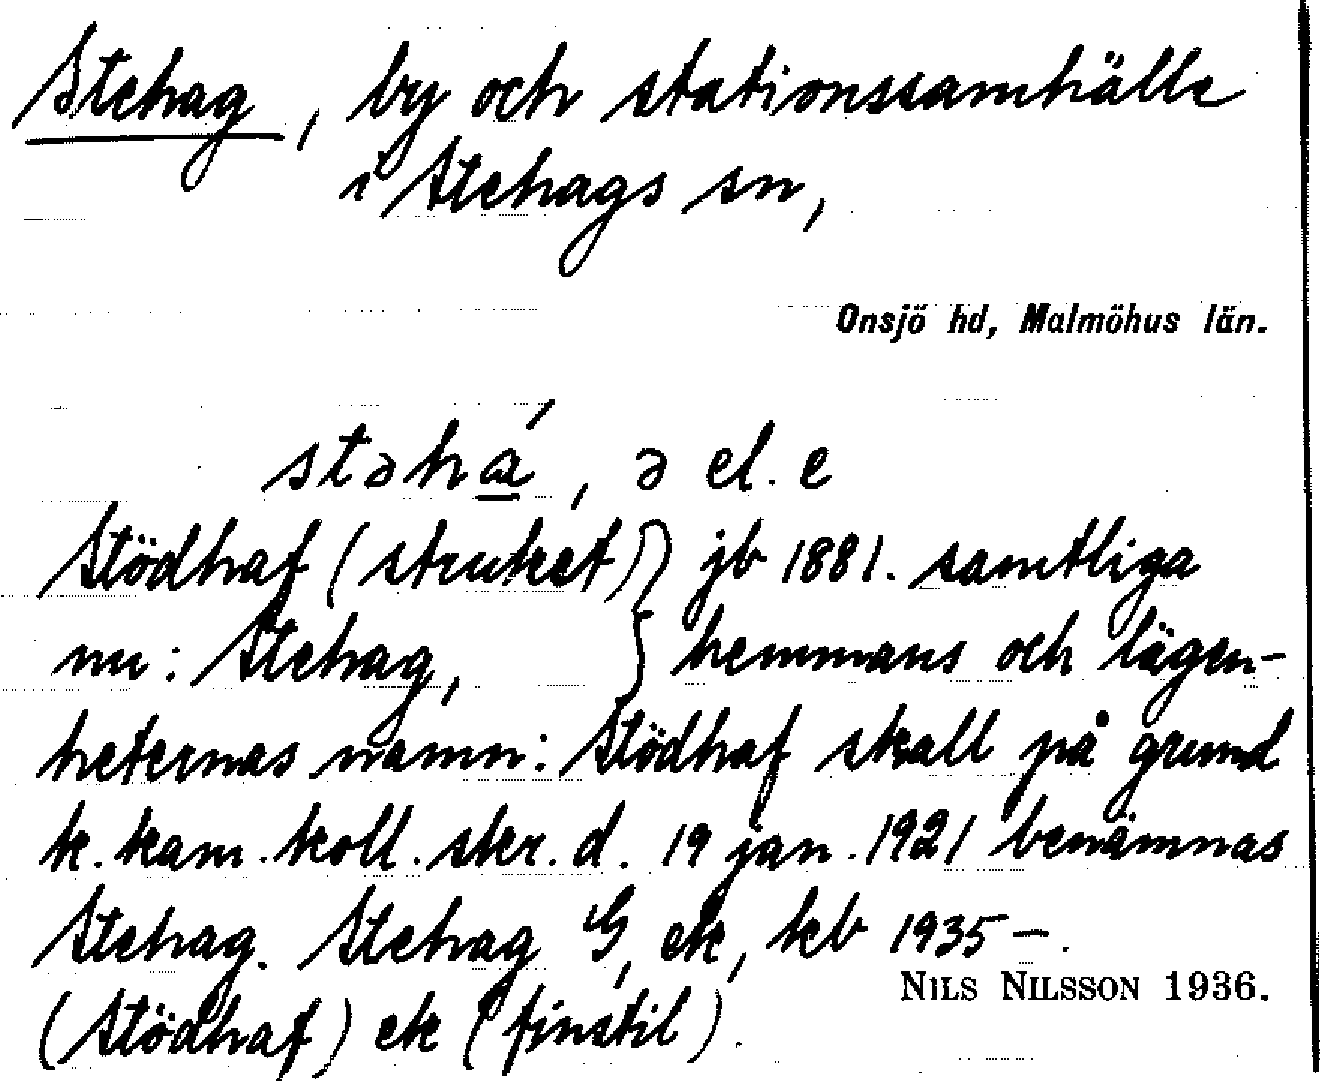 Stehag, by och stationssamhälle
i Stehags sn,
Onsjö hd, Malmöhus län.
stəhá̱, ə el. e
Stödhaf (struket) } jb 1881. samtliga
nu: Stehag, } hemmans och lägen-
heternas namn: Stödhaf skall på grund
k. kam. koll. skr. d. 19 jan. 1921 benämnas
Stehag. Stehag G, ek, kb 1935 –.
NILS NILSSON 1936.
(Stödhaf) ek (finstil).